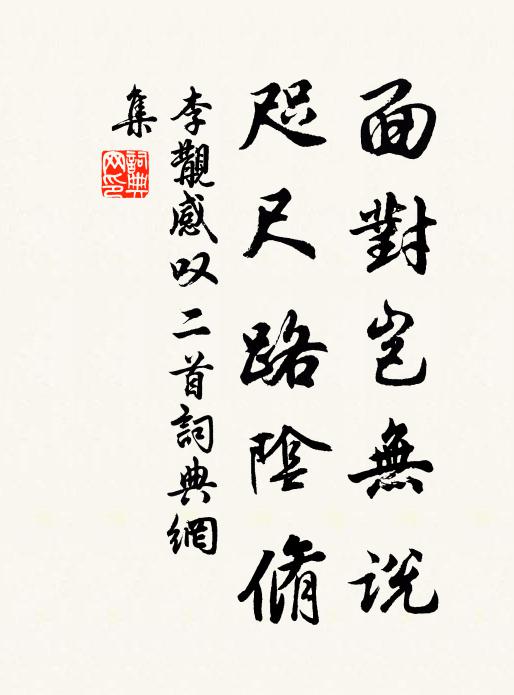 面對豈無說
咫尺路陰脩
李覯感叹二首詞典網
集
詞典网印